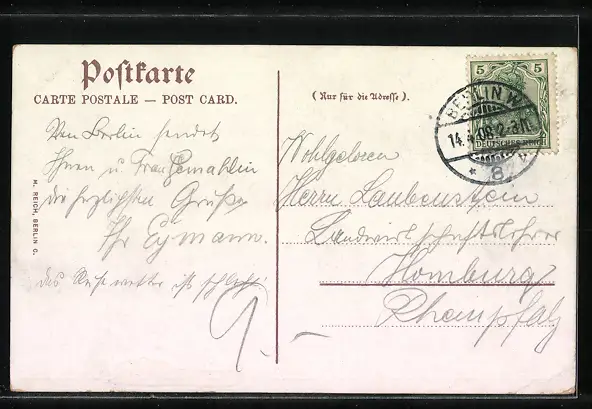 Postkarte
CARTE POSTALE — POST CARD.
(Nur für die Adresse).
Von Berlin sendet
Ihnen u. Frau Gemahlin
die herzlichsten Grüße
Ihr Eymann.
das Reisewetter ist schlecht!
M. REICH, BERLIN C.
5 5
DEUTSCHES REICH
BERLIN W
14. 08. 2-3N.
* 8
Wohlgeboren
Herrn Laubenstein
Landwirtschaftslehrer
Homburg
Rheinpfalz